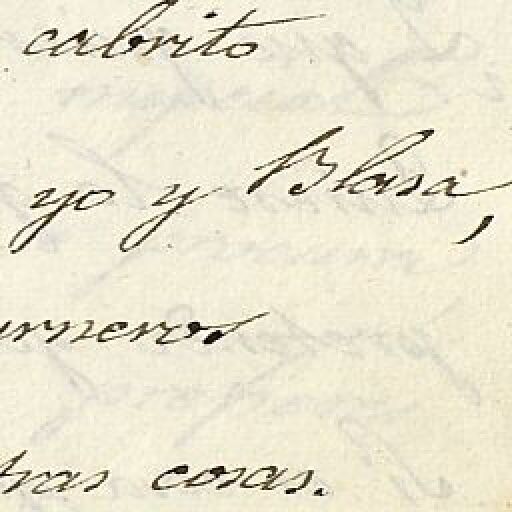 cabrito
yo y Blasa,
arneros
tras cosas.